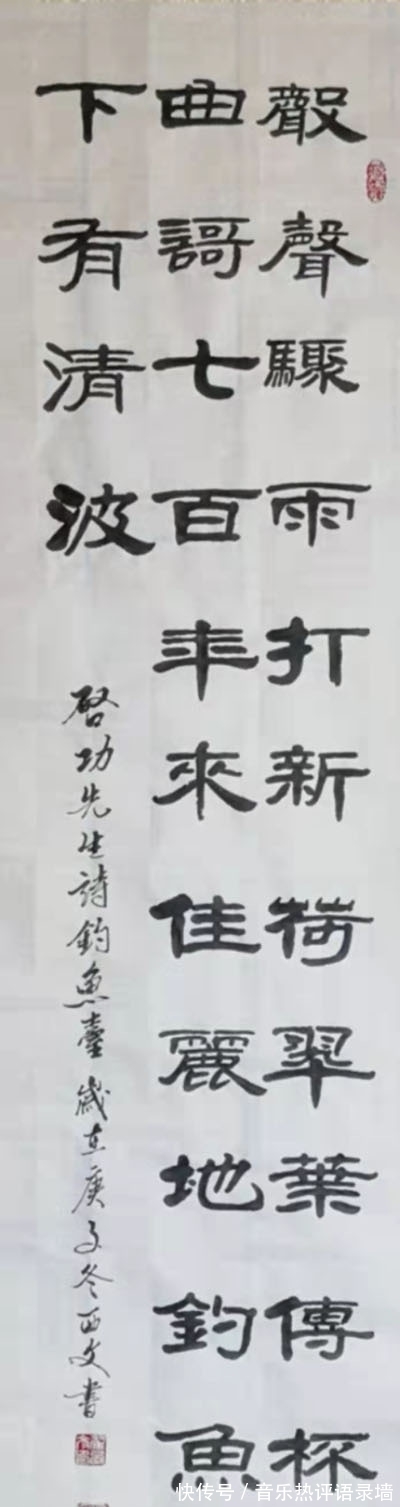 數聲驟雨打新荷翠葉傳杯
曲謌七百年來佳麗地釣魚
下有清波
啓功先生詩釣魚臺歲在庚子冬西文書
快传号/音乐热评语录墙